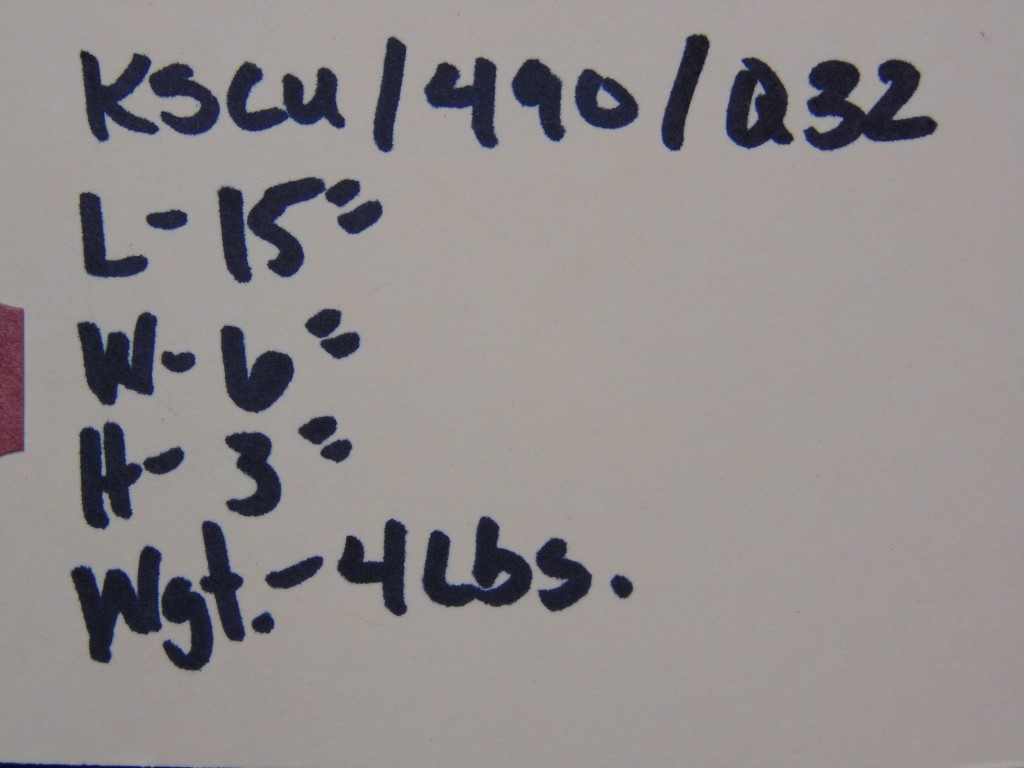 KSCU/490/Q32
L- 15"
W- 6"
H- 3"
Wgt.- 4 Lbs.